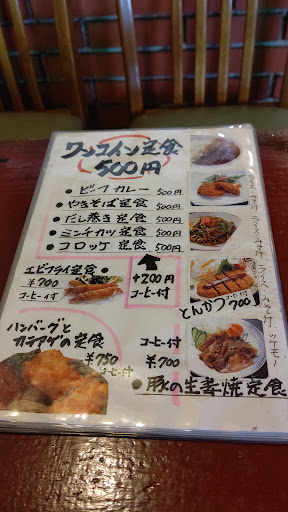 ワンコイン定食
500円
• ビーフカレー 500円
• やきそば定食 500円
• だし巻き定食 500円
• ミンチカツ定食 500円
• コロッケ定食 500円
+200円
コーヒー付
エビフライ定食 •
¥700
コーヒー付
とんかつ コーヒー付 700
ハンバーグと
カラアゲの定食
¥750
コーヒー付
コーヒー付
¥700
• 豚の生姜焼定食
ライス・みそ汁・ツケモノ